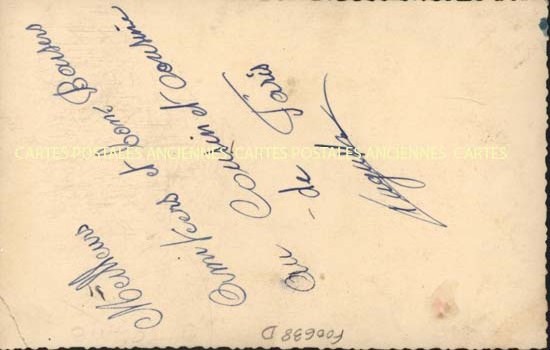 Meilleurs
Amitiers et bons Baisers
au Cousin et Cousine
- de Paris
CARTES POSTALES ANCIENNES CARTES POSTALES ANCIENNES CARTES POSTALES ANCIENNES
F00638 D